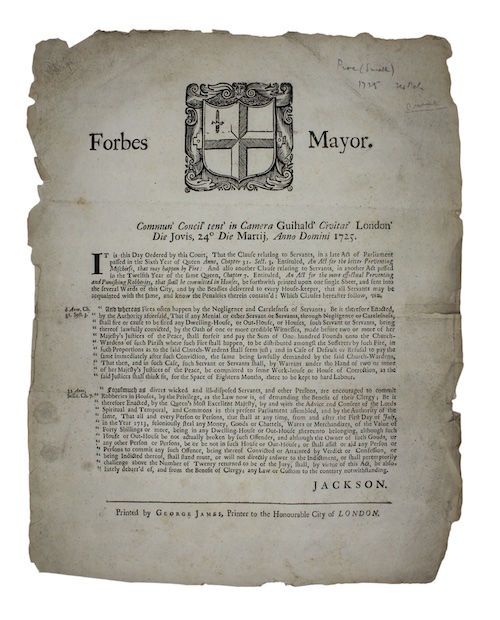 Proc (Small)
1725
Forbes Mayor.
Commun' Concil' tent' in Camera Guihald' Civitat' London'
Die Jovis, 24° Die Martij, Anno Domini 1725.
IT is this Day Ordered by this Court, That the Clause relating to Servants, in a late Act of Parliament
passed in the Sixth Year of Queen Anne, Chapter 31. Sect. 3. Entituled, An Act for the better Preventing
Mischiefs, that may happen by Fire: And also another Clause relating to Servants, in another Act passed
in the Twelfth Year of the same Queen, Chapter 7. Entituled, An Act for the more effectual Preventing
and Punishing Robberies, that shall be committed in Houses, be forthwith printed upon one single Sheet, and sent into
the several Wards of this City, and by the Beadles delivered to every House-keeper, that all Servants may be
acquainted with the same, and know the Penalties therein contain'd: Which Clauses hereafter follow, viz.
6 Ann. Ch. 31. Sect. 3.
" And whereas Fires often happen by the Negligence and Carelesness of Servants; Be it therefore Enacted,
" by the Authority aforesaid, That if any Menial or other Servant or Servants, through Negligence or Carelesness,
" shall fire or cause to be fired any Dwelling-House, or Out-House, or Houses, such Servant or Servants, being
" thereof lawfully convicted, by the Oath of one or more credible Witnesses, made before two or more of her
" Majesty's Justices of the Peace, shall forfeit and pay the Sum of One hundred Pounds unto the Church-
" Wardens of such Parish where such Fire shall happen, to be distributed amongst the Sufferers by such Fire, in
" such Proportions as to the said Church-Wardens shall seem just; and in Case of Default or Refusal to pay the
" same immediately after such Conviction, the same being lawfully demanded by the said Church-Wardens,
" That then, and in such Case, such Servant or Servants shall, by Warrant under the Hand of two or more
" of her Majesty's Justices of the Peace, be committed to some Work-house or House of Correction, as the
" said Justices shall think fit, for the Space of Eighteen Months, there to be kept to hard Labour.
12 Ann. Sess. Ch. 7.
" Forasmuch as divers wicked and ill-disposed Servants, and other Persons, are encouraged to commit
" Robberies in Houses, by the Privilege, as the Law now is, of demanding the Benefit of their Clergy: Be it
" therefore Enacted, by the Queen's Most Excellent Majesty, by and with the Advice and Consent of the Lords
" Spiritual and Temporal, and Commons in this present Parliament assembled, and by the Authority of the
" same, That all and every Person or Persons, that shall at any time, from and after the First Day of July,
" in the Year 1713, feloniously steal any Money, Goods or Chattels, Wares or Merchandizes, of the Value of
" Forty Shillings or more, being in any Dwelling-House or Out-House thereunto belonging, although such
" House or Out-House be not actually broken by such Offender, and although the Owner of such Goods, or
" any other Person or Persons be or be not in such House or Out-House, or shall assist or aid any Person or
" Persons to commit any such Offence, being thereof Convicted or Attainted by Verdict or Confession, or
" being Indicted thereof, shall stand mute, or will not directly answer to the Indictment, or shall peremptorily
" challenge above the Number of Twenty returned to be of the Jury, shall, by virtue of this Act, be abso-
" lutely debarr'd of, and from the Benefit of Clergy; any Law or Custom to the contrary notwithstanding.
JACKSON.
Printed by GEORGE JAMES, Printer to the Honourable City of LONDON.